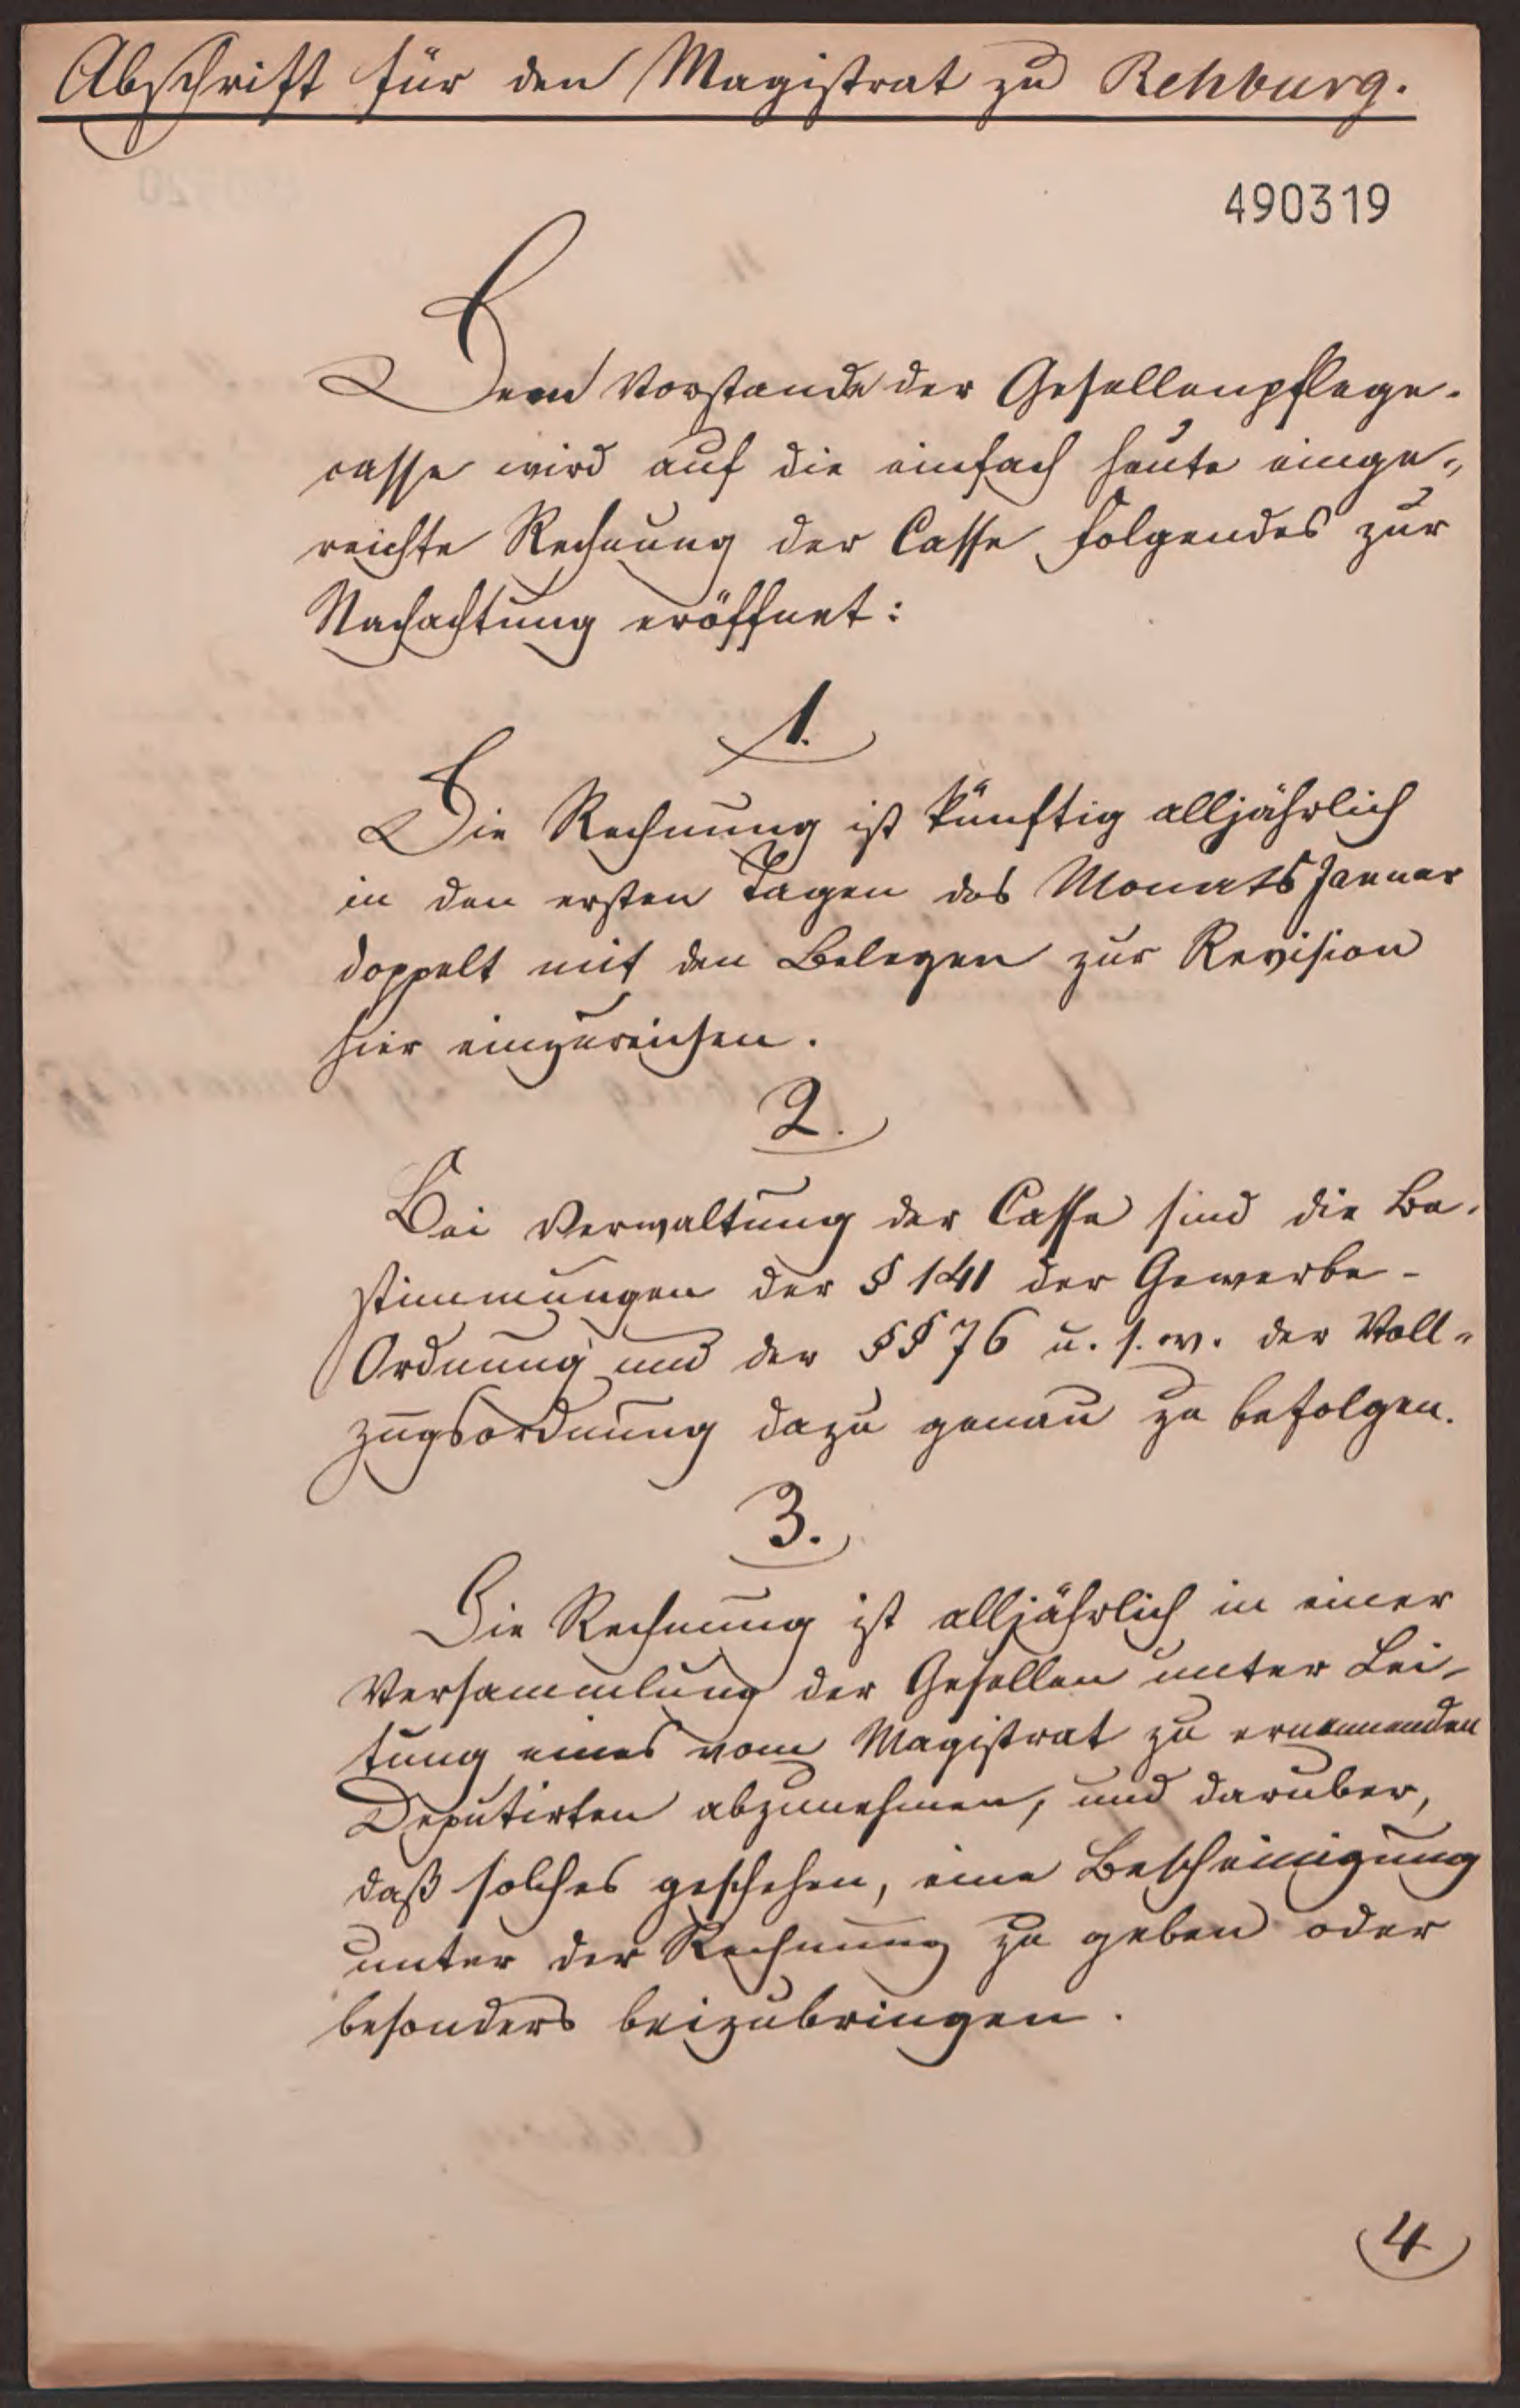 Abschrift für den Magistrat zu Rehburg.
490319
Dem Vorstande der Gesellenpflege-
casse wird auf die einfach heute einge-
reichte Rechnung der Casse Folgendes zur
Nachachtung eröffnet:
1.
Die Rechnung ist künftig alljährlich
in den ersten Tagen des Monats Januar
doppelt mit den Belegen zur Revision
hier einzureichen.
2.
Bei Verwaltung der Casse sind die Be-
stimmungen der § 141 der Gewerbe-
Ordnung und der §§ 76 u. s. w. der Voll-
zugsordnung dazu genau zu befolgen.
3.
Die Rechnung ist alljährlich in einer
Versammlung der Gesellen unter Lei-
tung eines vom Magistrat zu ernennenden
Deputirten abzunehmen, und darüber,
daß solches geschehen, eine Bescheinigung
unter der Rechnung zu geben oder
besonders beizubringen.
4